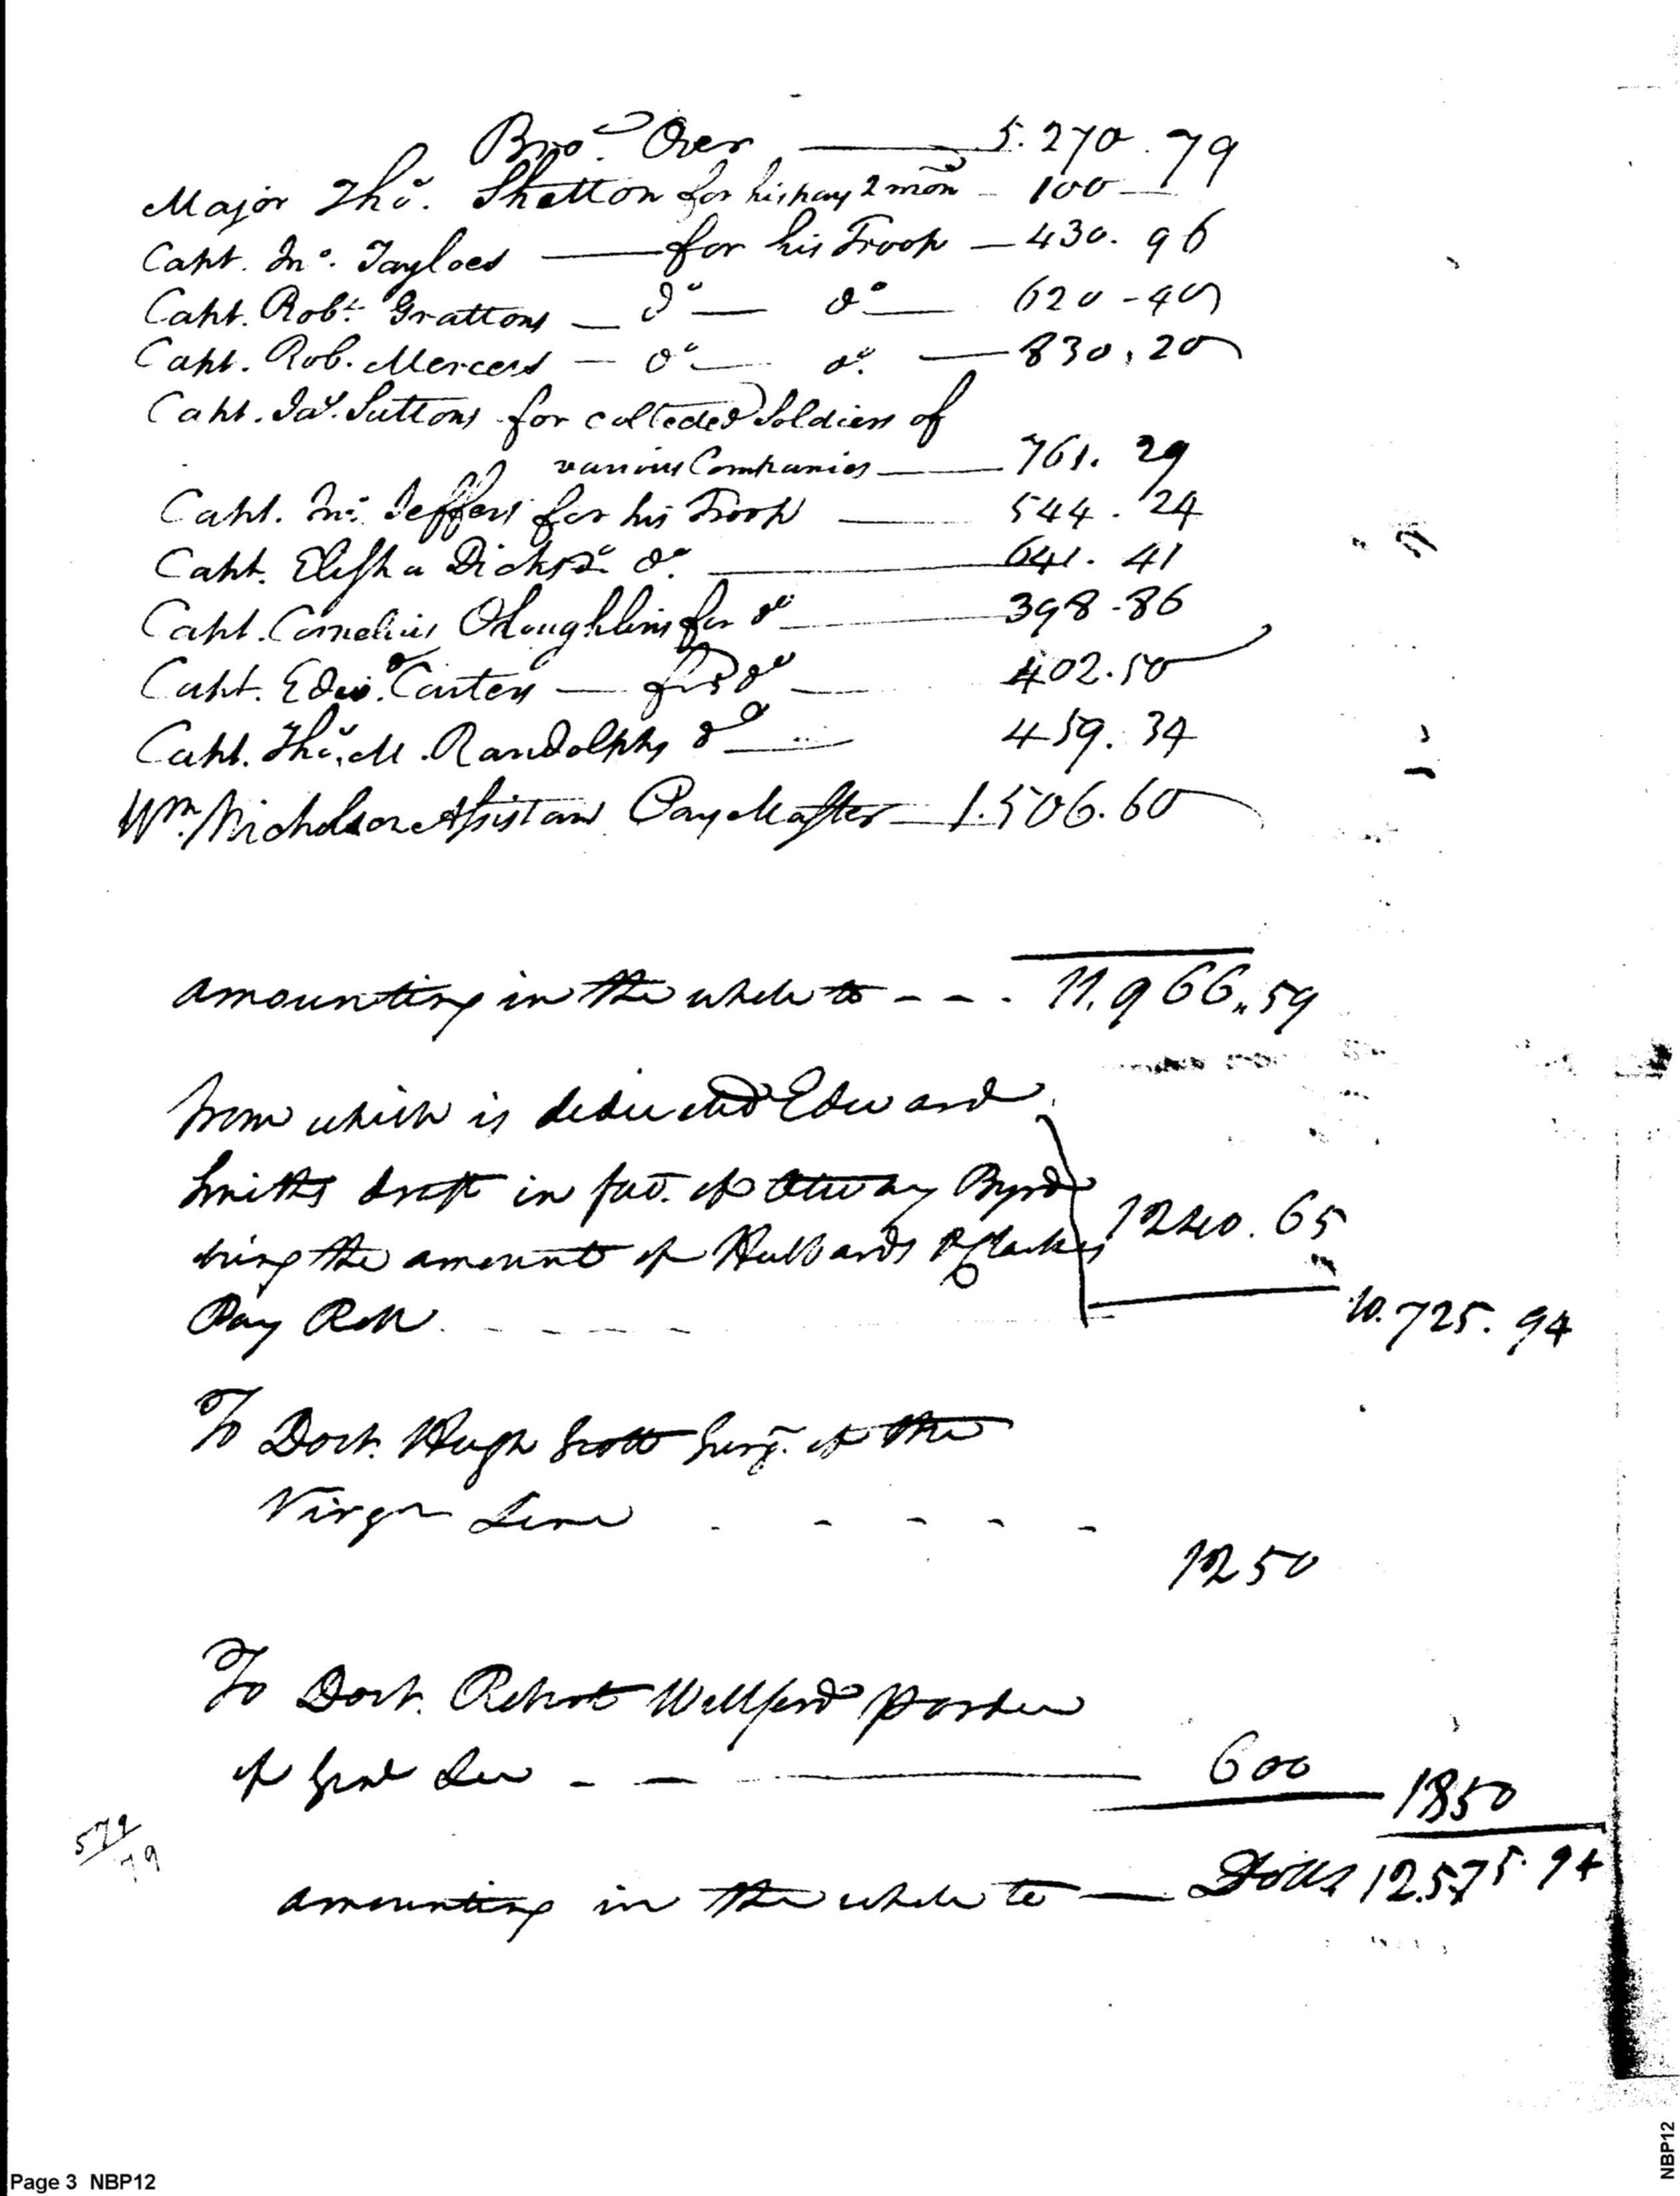 Bro.t Over ——— 5.270.79
Major Tho.s Shelton for his pay 2 mon – 100 —
Capt. Jno. Tayloes ——— for his Troop — 430.96
Capt. Robt. Grattons — do — do — 620-40
Capt. Rob. Mercers — do — do. — 830.20
Capt. Jas. Suttons for collected Soldiers of
various Companies ——— 761.29
Capt. Jno. Jeffers for his Troop ——— 544.24
Capt. Elisha Dicks do. ——— 641.41
Capt. Cornelius OLoughlins for do ——— 398-86
Capt. Edwd. Carters — for do — 402.50
Capt. Tho.s M. Randolphs do — 459.34
Wm. Nicholson Assistant PayMaster — 1.506.60
amounting in the whole to - - - 11.966.59
from which is deducted Edward
Smiths draft in fav. of Otway Byrd
being the amount of Hubbards & Clarkes 1240.65
Pay Roll - - - - 10.725.94
To Doct. Hugh Scott Surg. of the
Virga Line - - - - -
1250
To Doct. Robert Wellford
of Genl Lee - — ——— 600 1850
579
79
amounting in the whole to — Dolls 12.575.94
Page 3 NBP12
NBP12